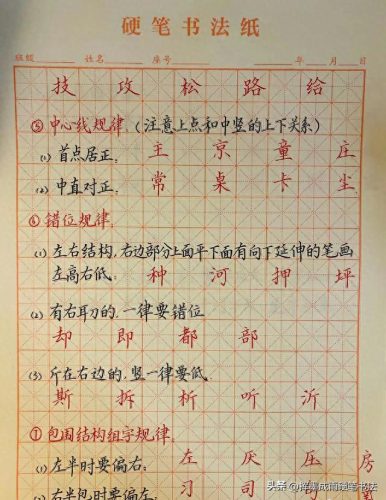 硬笔书法纸
班级 姓名 座号 年 月 日
技 攻 松 路 给
⑤中心线规律。(注意上点和中竖的上下关系)
(1)首点居正。 主 京 童 庄
(2)中直对正。 常 桌 卡 尘
⑥错位规律。
(1)左右结构,右边部分上面平下面有向下延伸的笔画
左高右低。 种 河 押 坪
(2)有右耳刀的,一律要错位
却 即 都 部
(3)斤在右边的,竖一律要低。
斯 拆 析 听 沂
⑦包围结构组字规律。
(1)左半时要偏右。 左 厌 压 房
右半包时要偏左。 习 司
头条